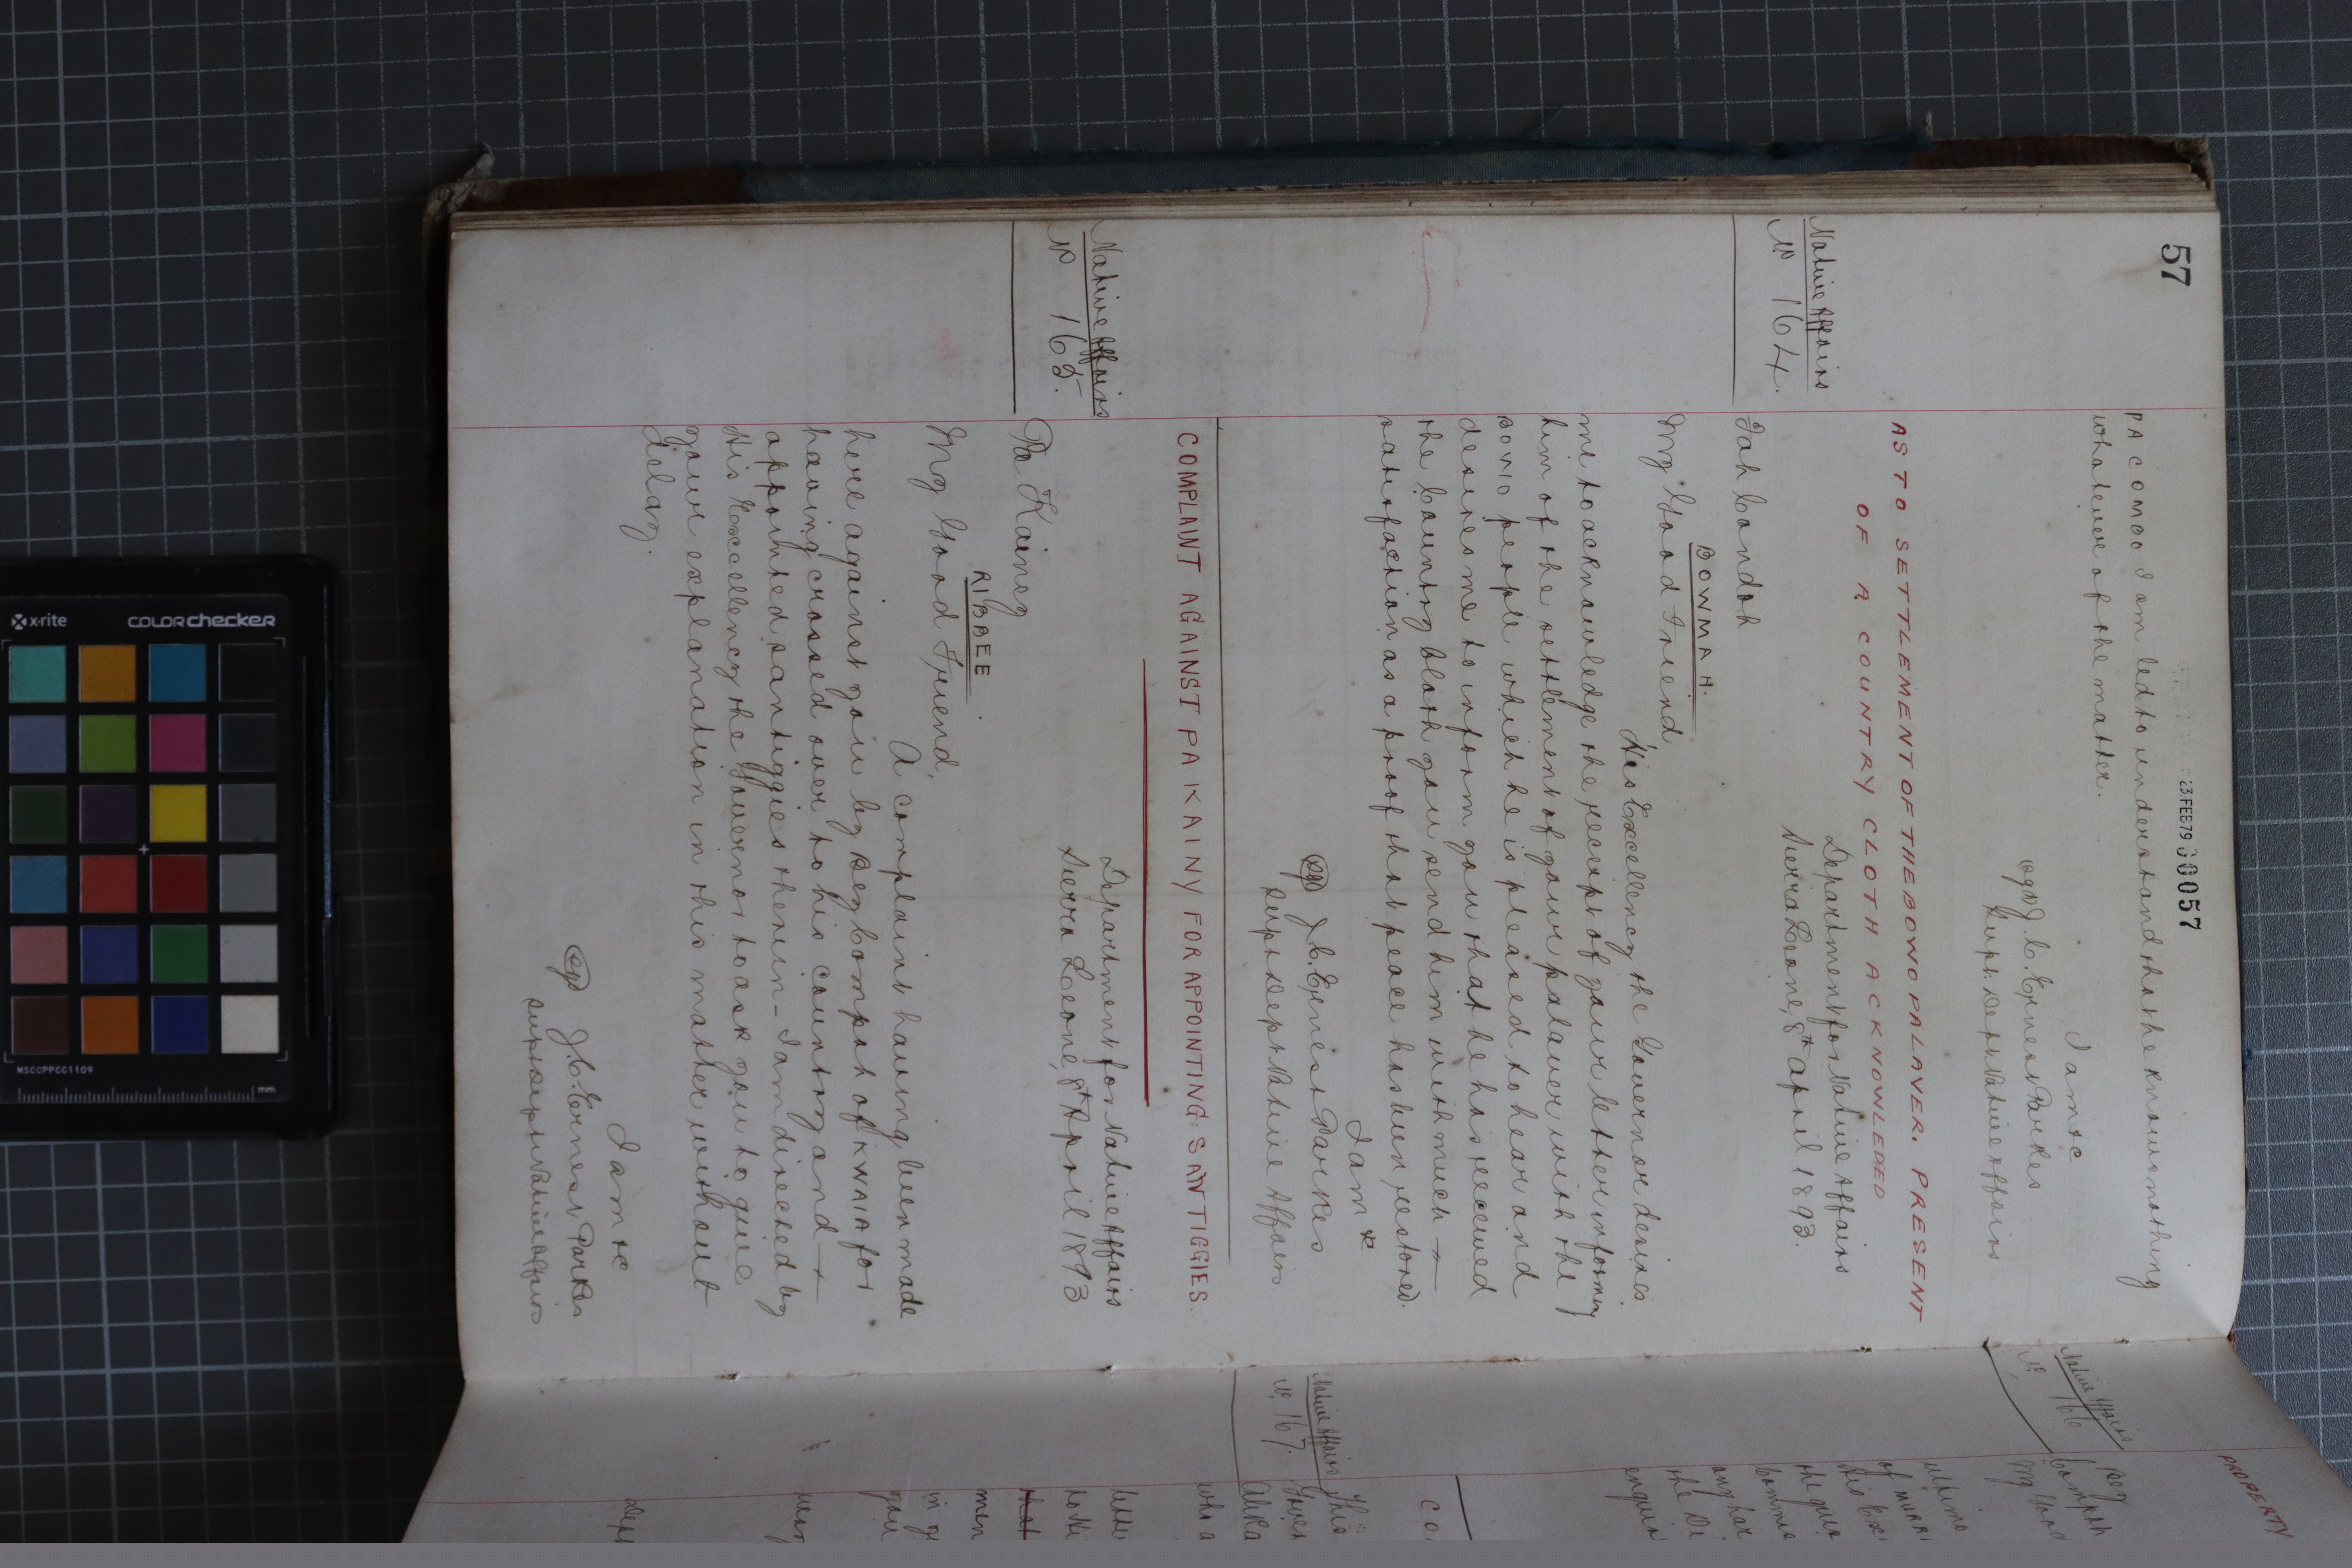 57
23 FEB 79 30057
PA COMBO I am led to understand that he knows nothing
whatever of the matter.
I am &c
(sgd) J. C. Ernest Parkes
Supt. Dept Native Affairs
AS TO SETTLEMENT OF THE BOWO PALAVER. PRESENT
OF A COUNTRY CLOTH ACKNOWLEDGED
Native Affairs
No 164.
Department for Native Affairs
Sierra Leone, 8th April 1893.
Fah Bondoh
BOWMAH.
My Good Friend
His Excellency the Governor desires
me to acknowledge the receipt of your letter informing
him of the settlement of your palaver with the
BOWO people which he is pleased to hear and
desires me to inform you that he has received
the Country Cloth you send him with much
satisfaction as a proof that peace has been restored.
I am &c
(sgd) J. C. Ernest Parkes
Supt Dept Native Affairs
COMPLAINT AGAINST PA KAINY FOR APPOINTING SANTIGGIES.
Native Affairs
No 165.
Department for Native Affairs
Sierra Leone, 8th April 1893
Pa Kainey
RIBBEE
My Good Friend,
A complaint having been made
here against you by Bey Compah of KWAIA for
having crossed over to his country and
appointed santiggies therein - I am directed by
His Excellency the Governor to ask you to give
your explanation in this matter without
delay.
I am &c
(sgd) J. C. Ernest Parkes
Supt Dept Native Affairs
PROPERTY
Native Affairs
No 166
Bey
Compah
My Good
ultimo
of
His Ex
the
any
the
enquir
CO
Native Affairs
No 167.
This
Gover
Alika
who a
lette
that
men
in
you
Dept